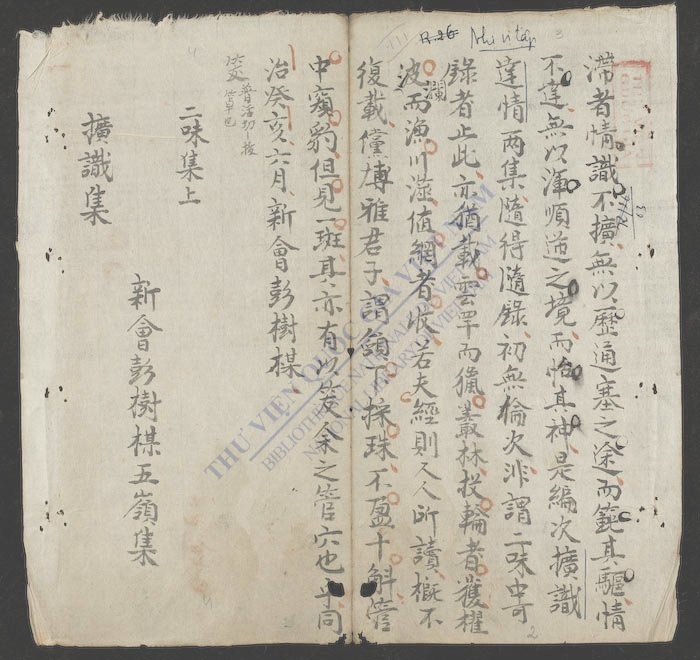 R.26
Nhi vị tập
滯者情識不擴無以歷通塞之途而範其驅情
不達無以渾順逆之境而怡其神是編次擴識
達情兩集隨得隨錄初無倫次非謂二味中可
錄者止此亦猶載雲罕而獵叢林投輪者獲櫂
瀾波而漁川澨值網者收若夫經則又人所讀概不
復載僅博雅君子謂頷下探珠不盈十斛管
中窺豹但見一斑其亦有以發余之管穴也乎同
治癸亥六月新會彭樹楳
二味集上
擴識集
新會彭樹楳五嶺集
THƯ VIỆN QUỐC GIA VIỆT NAM
BIBLIOTHEQUE NATIONALE DU VIETNAM
NATIONAL LIBRARY OF VIETNAM